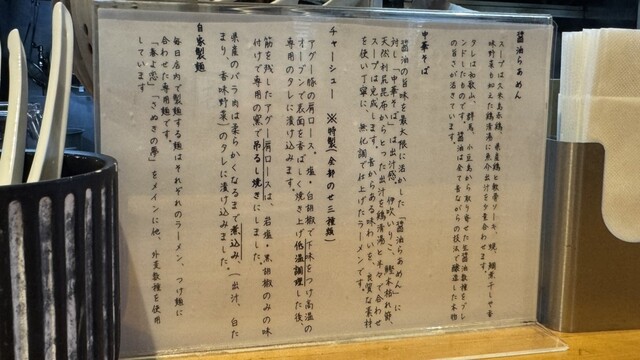 醤油らあめん
スープは久米島赤鶏、県産鶏と軟骨ソーキ、焼、鯛、煮干しや香
味野菜も加えた鶏清湯に魚介出汁を少量合わせます。
タレは和歌山、群馬、小豆島から取り寄せた生醤油数種をブレ
ンドしたものです。醤油は全て昔ながらの技法で醸造した本物
の旨さが活きています。
中華そば
醤油の旨味を最大限に活かした「醤油らあめん」に
対し「中華そば」は出汁感。伊吹いりこ、鰹本枯れ節、
天然利尻昆布からとった出汁を鶏清湯と半々で合わせ
スープは完成します。昔からある味わいを、良質な素材
を使い丁寧に、無化調で仕上げたラーメンです。
チャーシュー ※特製(全部のせ三種類)
アグー豚の肩ロース。塩・白胡椒で下味をつけ高温の
オーブンで表面を香ばしく焼き上げ低温調理した後、
専用のタレに漬け込みます。
筋を残したアグー肩ロースは、岩塩・黒胡椒のみの味
付けで専用の窯で吊るし焼きにしました。
県産のバラ肉は柔らかくなるまで煮込み、(出汁、白た
まり、香味野菜)のタレに漬け込みました。
自家製麺
毎日店内で製麺する麺はそれぞれのラーメン、つけ麺に
合わせた専用麺です。
「春よ恋」「さぬきの夢」をメインに他、外麦数種を使用
しています。